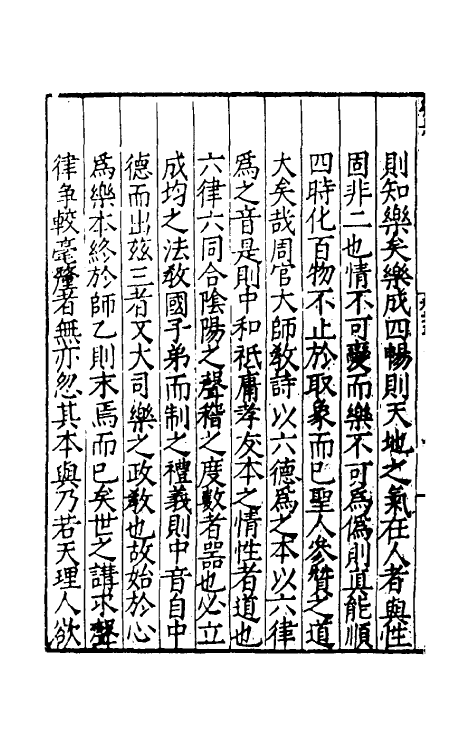 則知樂矣樂成四暢則天地之氣在人者與性
固非二也情不可變而樂不可為偽則真能順
四時化百物不止於取象而已聖人參贊之道
大矣哉周官大師教詩以六德為之本以六律
為之音是則中和祗庸孝友本之情性者道也
六律六同合陰陽之聲稽之度數者器也必立
成均之法教國子弟而制之禮義則中音自中
德而出玆三者又大司樂之政教也故始於心
為樂本終於師乙則末焉而已矣世之講求聲
律爭較毫釐者無亦忽其本與乃若天理人欲